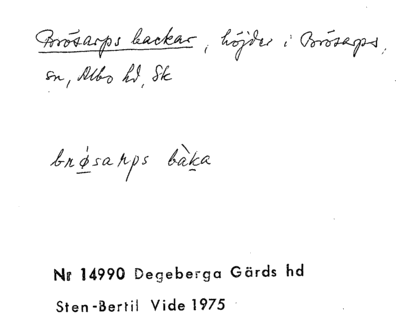 Brösarps backar, höjder i Brösarps
sn, Albo hd, Sk
brǿ̱sarps bàḵa
Nr 14990 Degeberga Gärds hd
Sten-Bertil Vide 1975